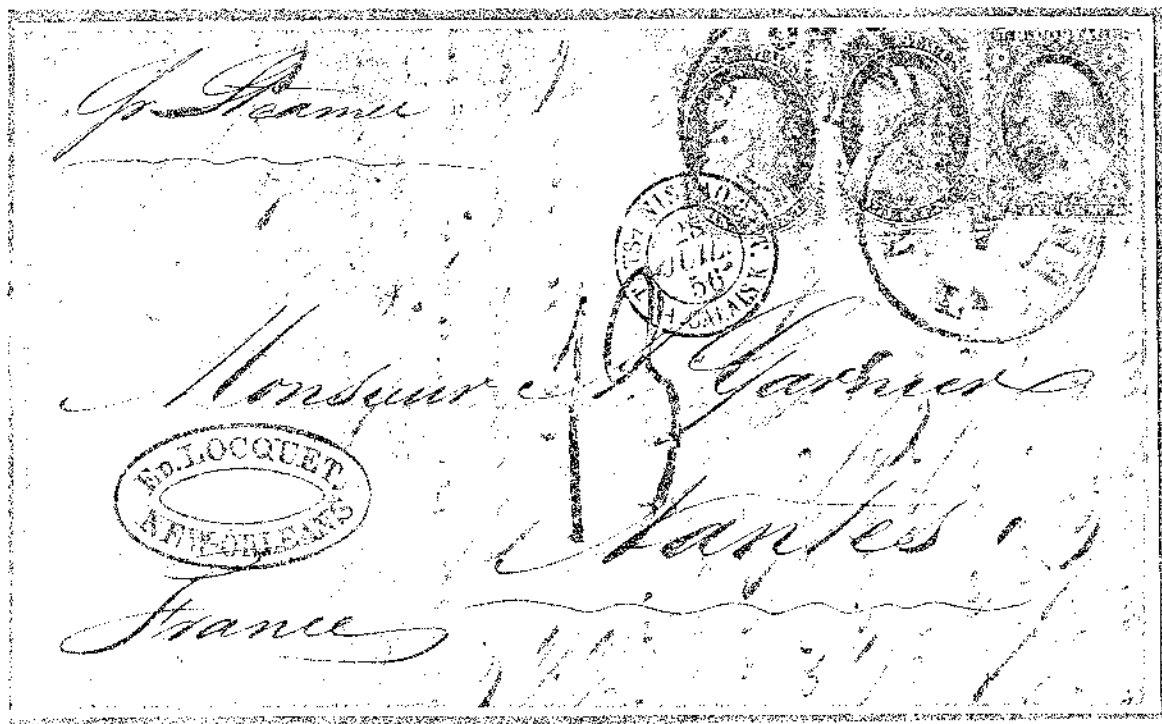 Pr Steamer
28
JUIL.
56
A CALAIS
Monsieur Garnier
13
ED. LOCQUET.
NEW-ORLEANS
Nantes
France